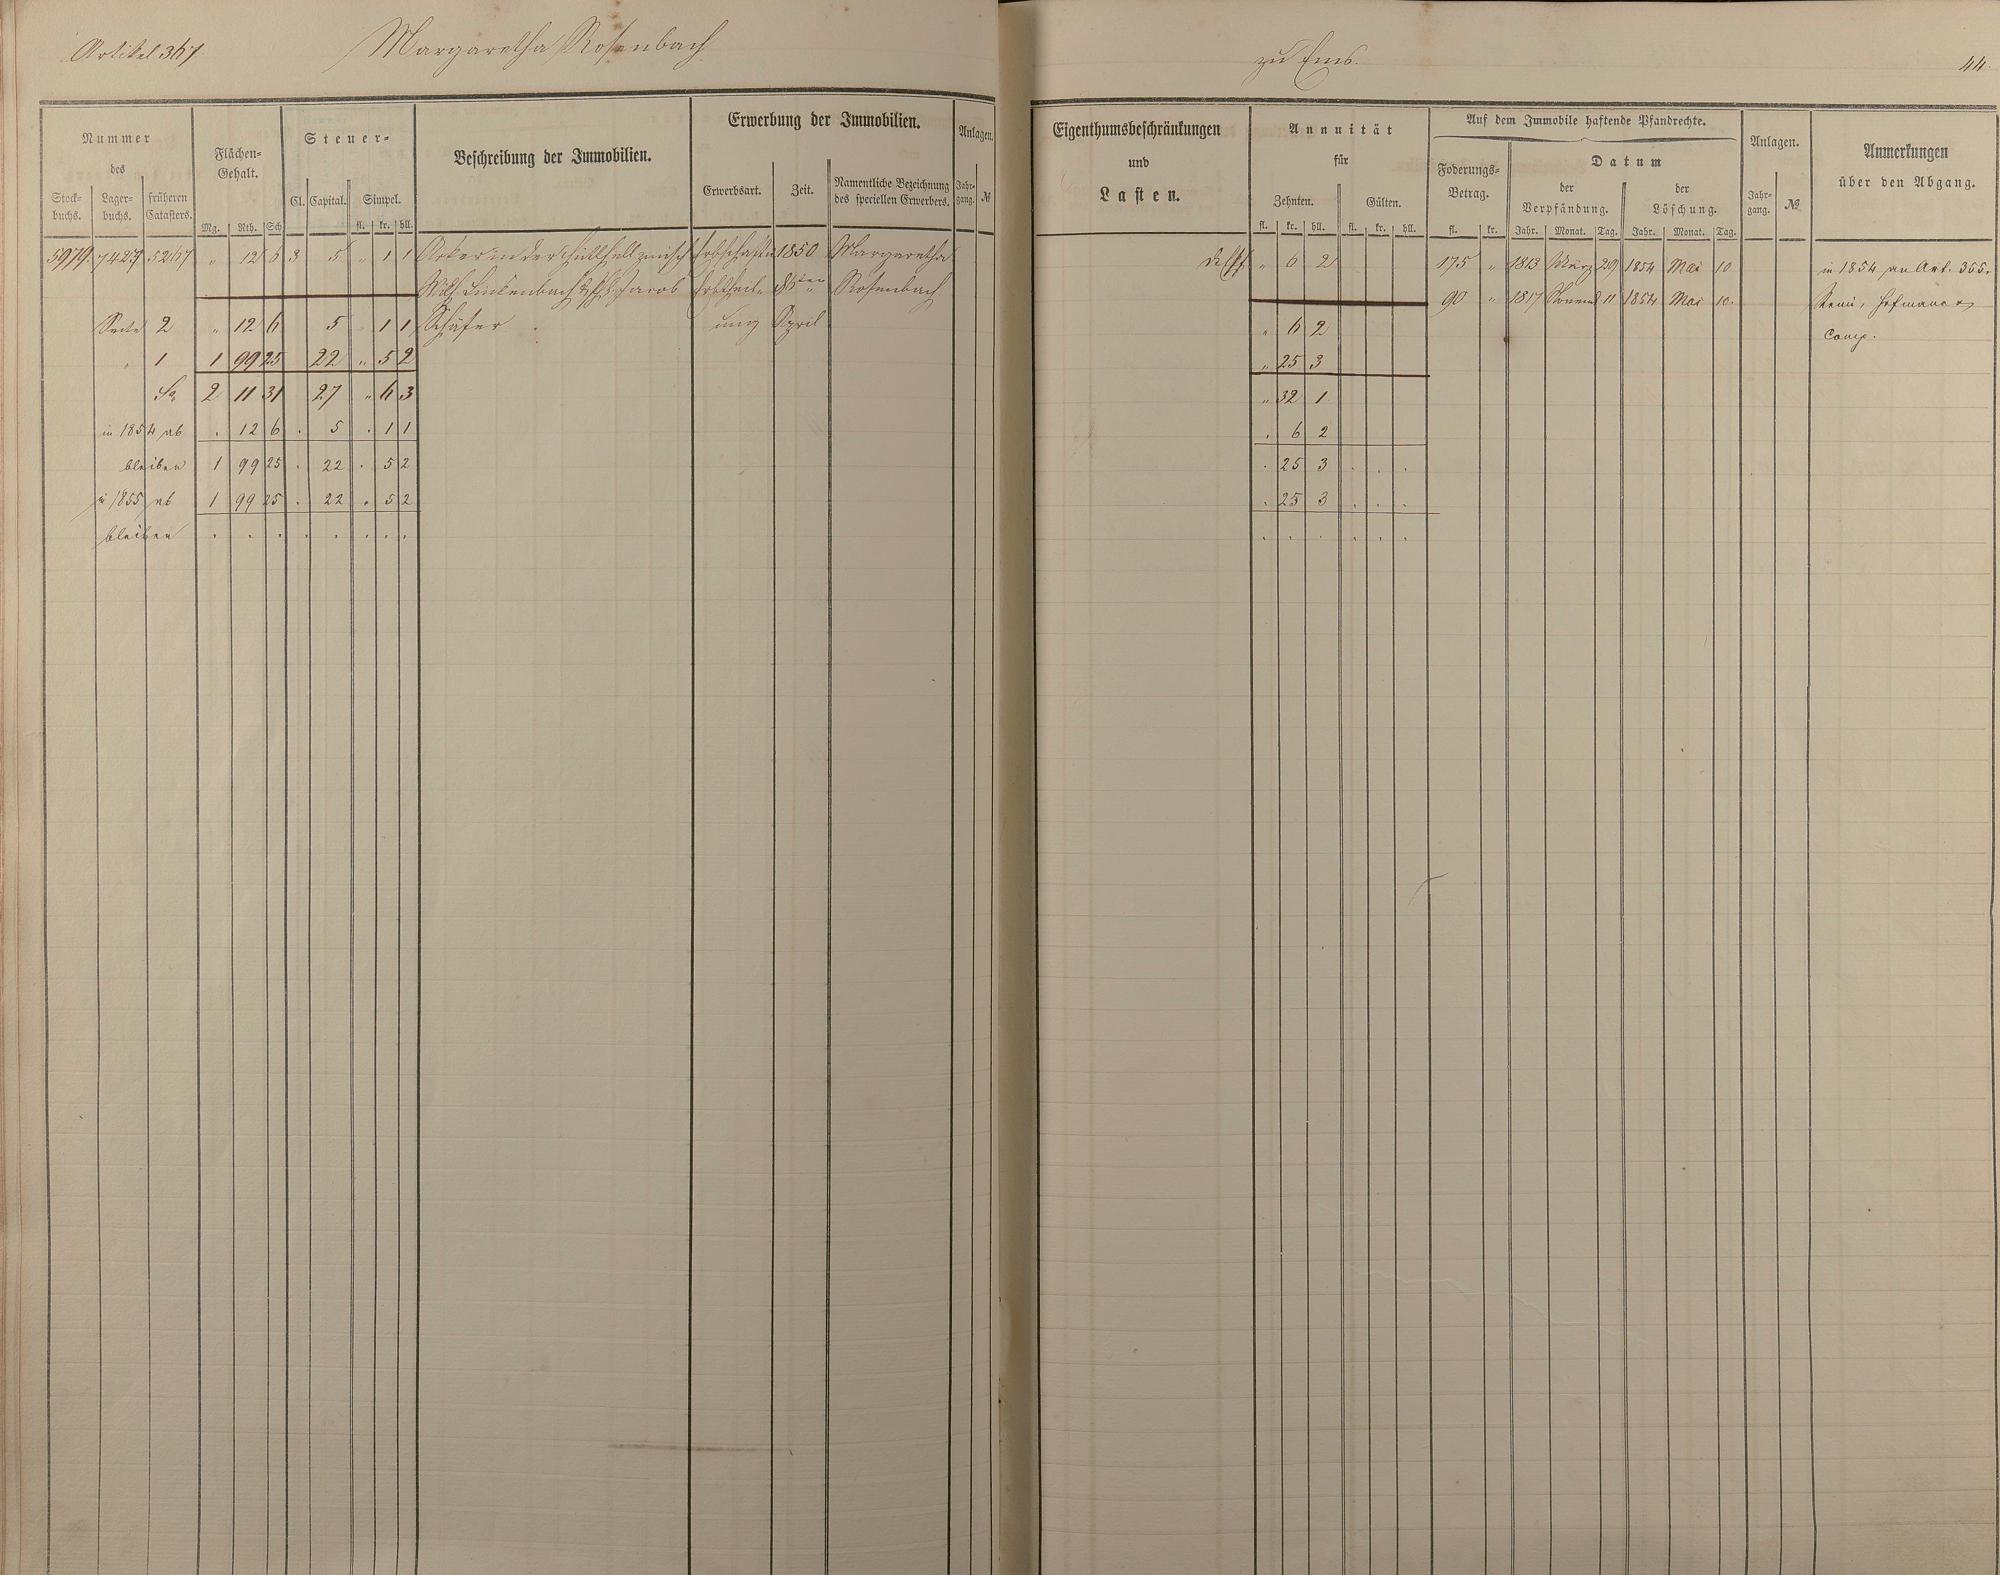 Artikel 367 Margaretha Rosenbach zu Ems. 44.
Nummer des
Stock-buchs. Lager-buchs. früheren Catasters.
Flächen-Gehalt.
Mg. Rth. Sch
Steuer-
Cl. Capital. Simpel.
fl. kr. hll.
Beschreibung der Immobilien.
Erwerbung der Immobilien.
Erwerbsart. Zeit. Namentliche Bezeichnung des speciellen Erwerbers.
Anlagen.
Jahr-gang. №
Eigenthumsbeschränkungen
und
Lasten.
Annuität
für
Zehnten. Gülten.
fl. kr. hll. fl. kr. hll.
Auf dem Immobile haftende Pfandrechte.
Foderungs-Betrag.
fl. kr.
Datum
der Verpfändung. der Löschung.
Jahr. Monat. Tag. Jahr. Monat. Tag.
Anlagen.
Jahr-gang. №
Anmerkungen
über den Abgang.
5979 7427 5267 " 12 6 3 5 " 1 1 Acker in der zwisch 1850 Margaretha " 6 2 175 " 1813 März 29 1854 Mai 10 in 1854 an Art. 355.
Wilh. Linkenbach Jacob Erbtheil- Rosenbach. 90 " 1817 11 1854 Mai 10. Hofmann &
Seite 2 " 12 6 5 " 1 1 Schäfer ung April " 6 2 Comp.
" 1 1 99 25 22 " 5 2 " 25 3
Sa. 2 11 31 27 " 6 3 " 32 1
in 1854 ab . 12 6 . 5 . 1 1 . 6 2
bleiben 1 99 25 . 22 . 5 2 . 25 3 . . .
in 1855 ab 1 99 25 . 22 . 5 2 . 25 3 . . .
bleiben . . . . . . . . . . . . . .